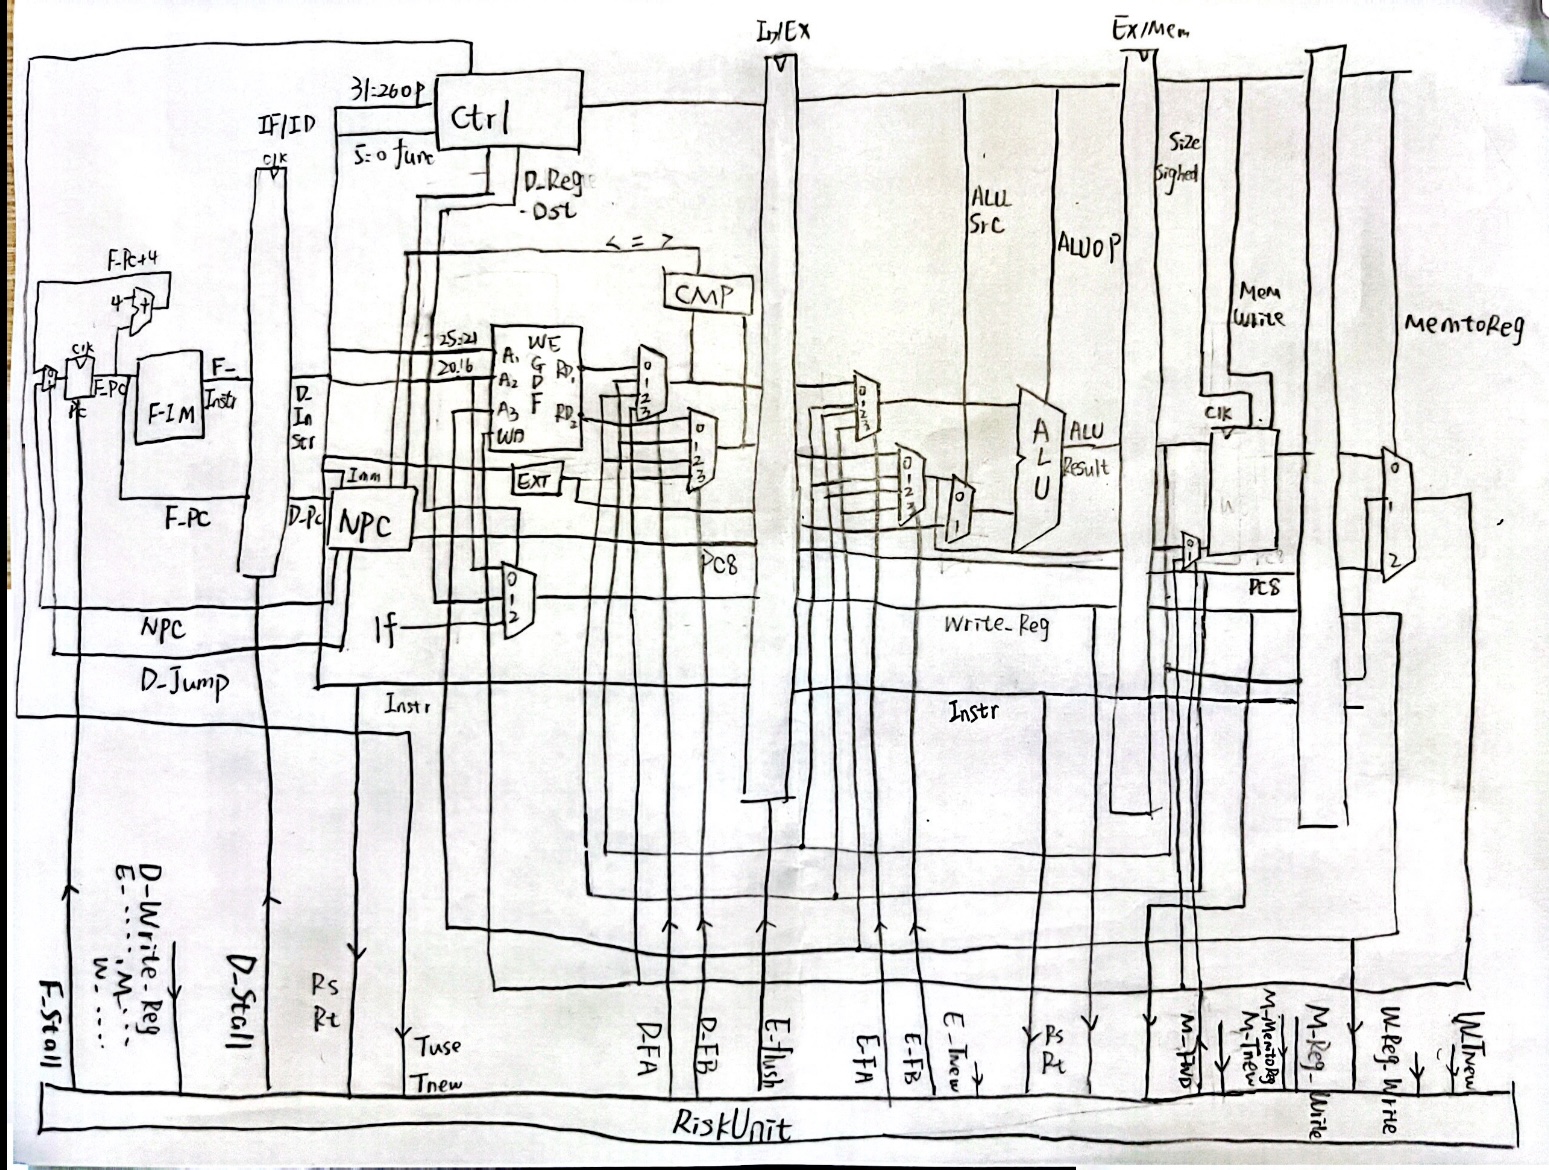 In/Ex
Ex/Mem
31=26 op
Ctrl
IF/ID
clk
5=0 func
D_Reg
-Dst
Size
Signed
ALU
Src
ALUOP
< = >
CMP
Mem
Write
MemtoReg
F-Pc+4
4
+
clk
PC
F-PC
F-IM
F-
Instr
D_
In
Str
25:21
20.16
A1
A2
A3
WD
WE
G
D
F
RD1
RD2
0
1
2
3
0
1
2
3
0
1
2
3
0
1
2
3
0
1
A
L
U
ALU
Result
clk
0
1
0
1
2
Imm
EXT
F_PC
D_Pc
NPC
PC8
PC8
0
1
2
1f
NPC
Write_Reg
D_Jump
Instr
Instr
F_Stall
D-Write-Reg
E-......
M...
W-.....
D_Stall
Rs
Rt
Tuse
Tnew
D-FA
D-FB
E-Flush
E-FA
E-FB
E-Tnew
Rs
Rt
M-FWD
M-Tnew
M-MemtoReg
M-Reg-Write
W-Reg-Write
WTnew
RiskUnit